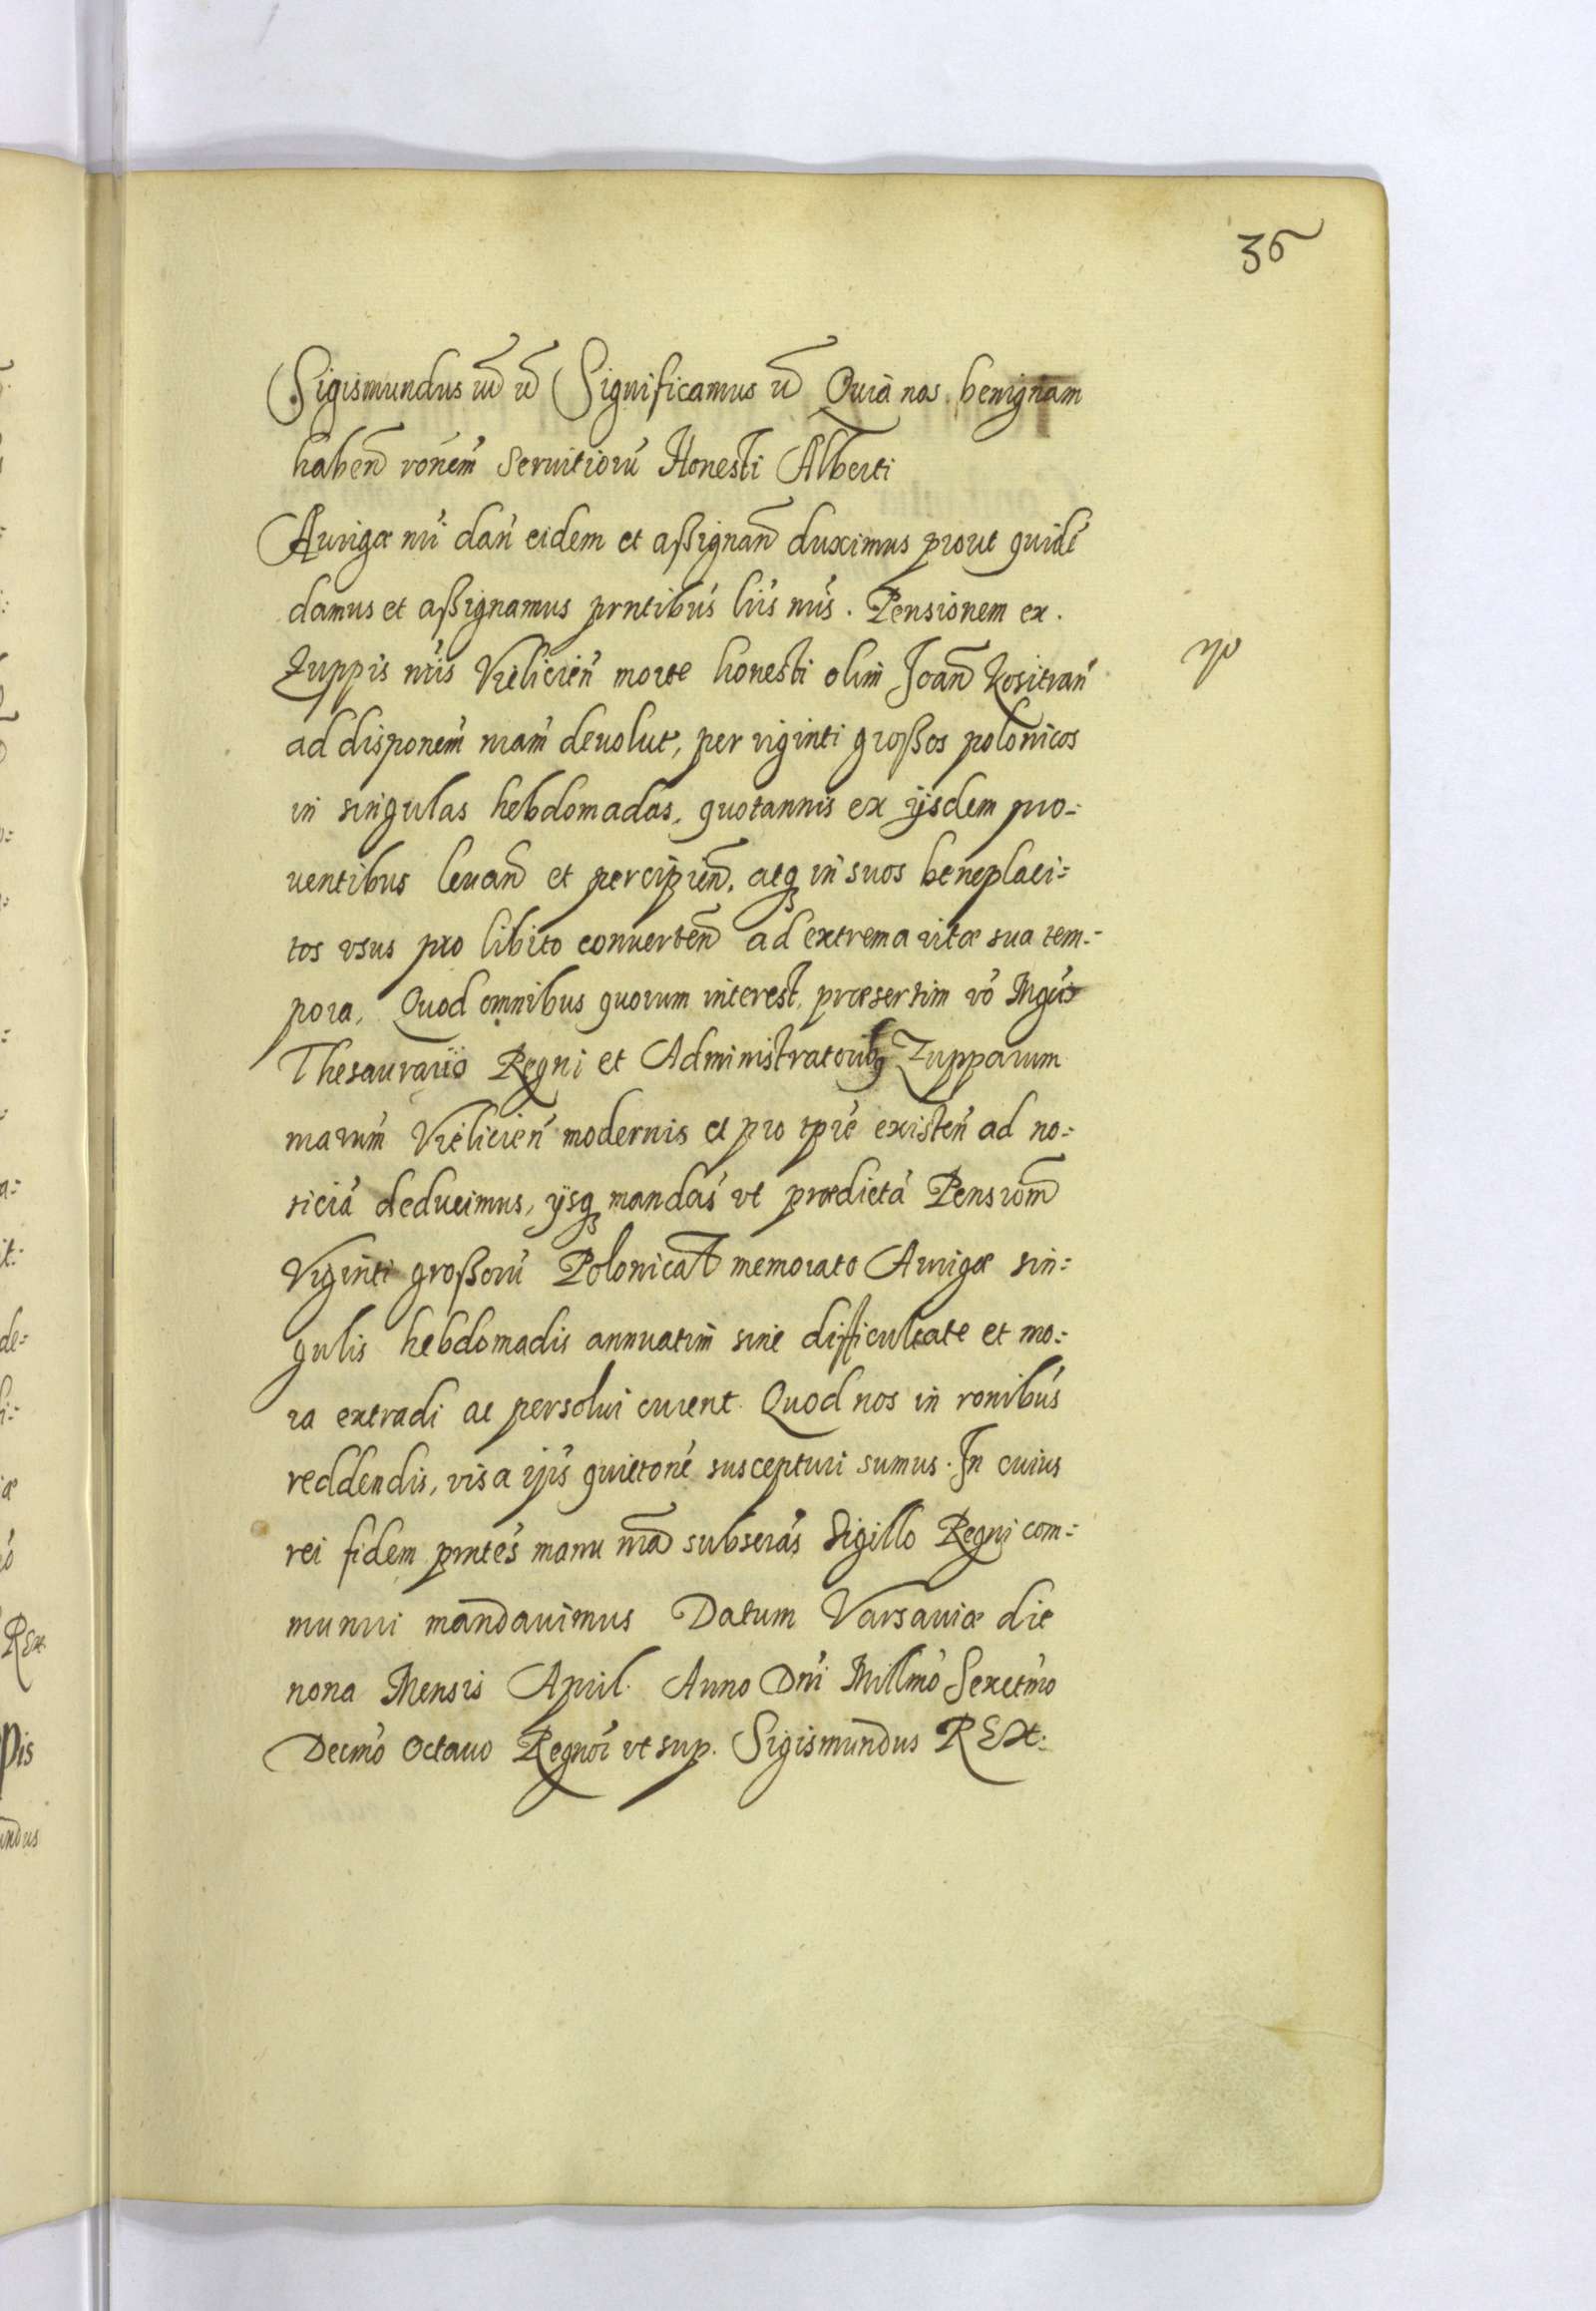 36
Sigismundus Significamus Quia nos benignam
haben̄ rōnem servitiorū Honesti Alberti
Aurigæ nr̄i dan̄ eidem et aßignan̄ duximus prout quidē
damus et aßignamus prn̄tibus lr̄is nr̄is. Pensionem ex
Zuppis nr̄is Vielicien̄ morte honesti olim Joan̄ Kositran̄
ad disponem̄ nr̄am devolut, per viginti großos polonicos
in singulas hebdomadas, quotannis ex ijsdem pro:
ventibus levan̄ et percipien̄, atq in suos beneplaci:
tos usus pro libito converten̄ ad extrema vitæ sua tem:
pora, Quod omnibus quorum interest, præsertim vō Mgco
Thesaurario Regni et Administratoribq Zupparum
nr̄arum Vielicien̄ modernis et pro tpre existen̄ ad no:
ticiā deducimus, ijsq mandās ut prædictā Pensionem̄
Viginti großorū Polonical memorato Aurigæ sin:
gulis hebdomadis annuatim sine difficultate et mo:
ra extradi ac persolui curent Quod nos in ronibus
reddendis, visa ijis quietone suscepturi sumus. In cuius
rei fidem prn̄tes manu nr̄a subscrās Sigillo Regni com:
muniri mandavimus Datum Varsaviæ die
nona Mensis April. Anno Dn̄i Millmō Sexctmō
Decimō Octavo Regnor̄ ut sup. Sigismundus REX.